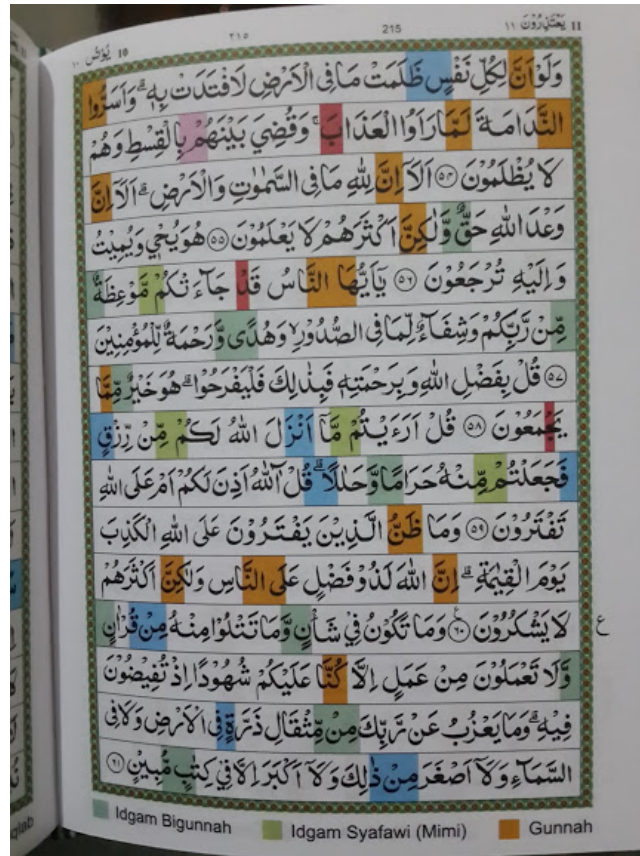 ١٠ يُوْنُس 10
٢١٥
215
يَعْتَذِرُوْنَ ١١ 11
وَلَوْ اَنَّ لِكُلِّ نَفْسٍ ظَلَمَتْ مَا فِى الْاَرْضِ لَافْتَدَتْ بِهٖ ۗ وَاَسَرُّوا
النَّدَامَةَ لَمَّا رَاَوُا الْعَذَابَ ۚ وَقُضِيَ بَيْنَهُمْ بِالْقِسْطِ وَهُمْ
لَا يُظْلَمُوْنَ ۝٥٤ اَلَآ اِنَّ لِلّٰهِ مَا فِى السَّمٰوٰتِ وَالْاَرْضِ ۗ اَلَآ اِنَّ
وَعْدَ اللّٰهِ حَقٌّ وَّلٰكِنَّ اَكْثَرَهُمْ لَا يَعْلَمُوْنَ ۝٥٥ هُوَ يُحْيٖ وَيُمِيْتُ
وَاِلَيْهِ تُرْجَعُوْنَ ۝٥٦ يٰٓاَيُّهَا النَّاسُ قَدْ جَاۤءَتْكُمْ مَّوْعِظَةٌ
مِّنْ رَّبِّكُمْ وَشِفَاۤءٌ لِّمَا فِى الصُّدُوْرِۙ وَهُدًى وَّرَحْمَةٌ لِّلْمُؤْمِنِيْنَ
۝٥٧ قُلْ بِفَضْلِ اللّٰهِ وَبِرَحْمَتِهٖ فَبِذٰلِكَ فَلْيَفْرَحُوْا ۗ هُوَ خَيْرٌ مِّمَّا
يَجْمَعُوْنَ ۝٥٨ قُلْ اَرَءَيْتُمْ مَّآ اَنْزَلَ اللّٰهُ لَكُمْ مِّنْ رِّزْقٍ
فَجَعَلْتُمْ مِّنْهُ حَرَامًا وَّحَلٰلًا ۗ قُلْ اٰۤللّٰهُ اَذِنَ لَكُمْ اَمْ عَلَى اللّٰهِ
تَفْتَرُوْنَ ۝٥٩ وَمَا ظَنُّ الَّذِيْنَ يَفْتَرُوْنَ عَلَى اللّٰهِ الْكَذِبَ
يَوْمَ الْقِيٰمَةِ ۗ اِنَّ اللّٰهَ لَذُوْ فَضْلٍ عَلَى النَّاسِ وَلٰكِنَّ اَكْثَرَهُمْ
لَا يَشْكُرُوْنَ ۝٦٠ وَمَا تَكُوْنُ فِيْ شَأْنٍ وَّمَا تَتْلُوْا مِنْهُ مِنْ قُرْاٰنٍ
ع
وَّلَا تَعْمَلُوْنَ مِنْ عَمَلٍ اِلَّا كُنَّا عَلَيْكُمْ شُهُوْدًا اِذْ تُفِيْضُوْنَ
فِيْهِ ۗ وَمَا يَعْزُبُ عَنْ رَّبِّكَ مِنْ مِّثْقَالِ ذَرَّةٍ فِى الْاَرْضِ وَلَا فِى
السَّمَاۤءِ وَلَآ اَصْغَرَ مِنْ ذٰلِكَ وَلَآ اَكْبَرَ اِلَّا فِيْ كِتٰبٍ مُّبِيْنٍ ۝٦١
Idgam Bigunnah
Idgam Syafawi (Mimi)
Gunnah